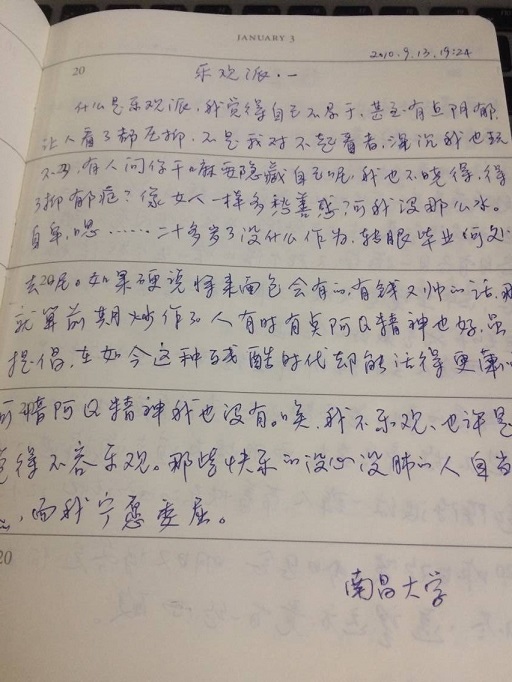 JANUARY 3
2010.9.13.19:24
20
乐观派.一
什么是乐观派,我觉得自己不属于,甚至有点阴郁,
让人看了都压抑,不是我对不起看者,深沉我也玩
不
有人问你干嘛要隐藏自己呢,我也不晓得,得
了抑郁症?像女人一样多愁善感?可我没那么水。
自卑,嗯……二十多岁了没什么作为,转眼毕业何处
去呢。如果硬说将来面包会有的,有钱又帅的话,那
就算前期炒作了人有时有点阿Q精神也好,虽
提倡,在如今这种残酷时代却能活得更
可惜阿Q精神我也没有。唉,我不乐观、也许是
觉得不容乐观。那些快乐的没心没肺的人自当
,而我宁愿委屈。
20
南昌大学